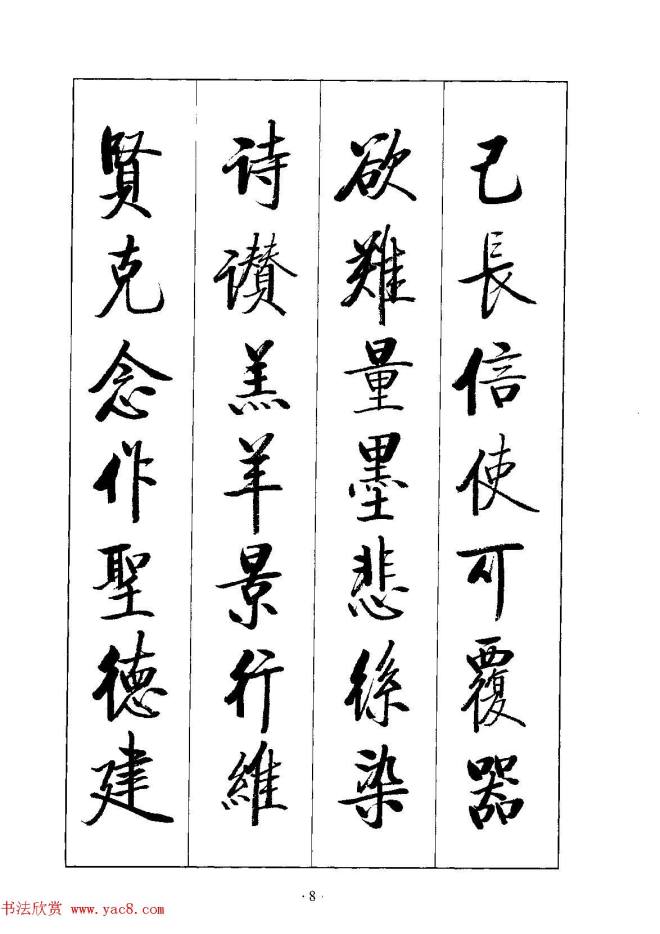 己長信使可覆器
欲難量墨悲絲染
詩讚羔羊景行維
賢克念作聖德建
·8·
书法欣赏 www.yac8.com